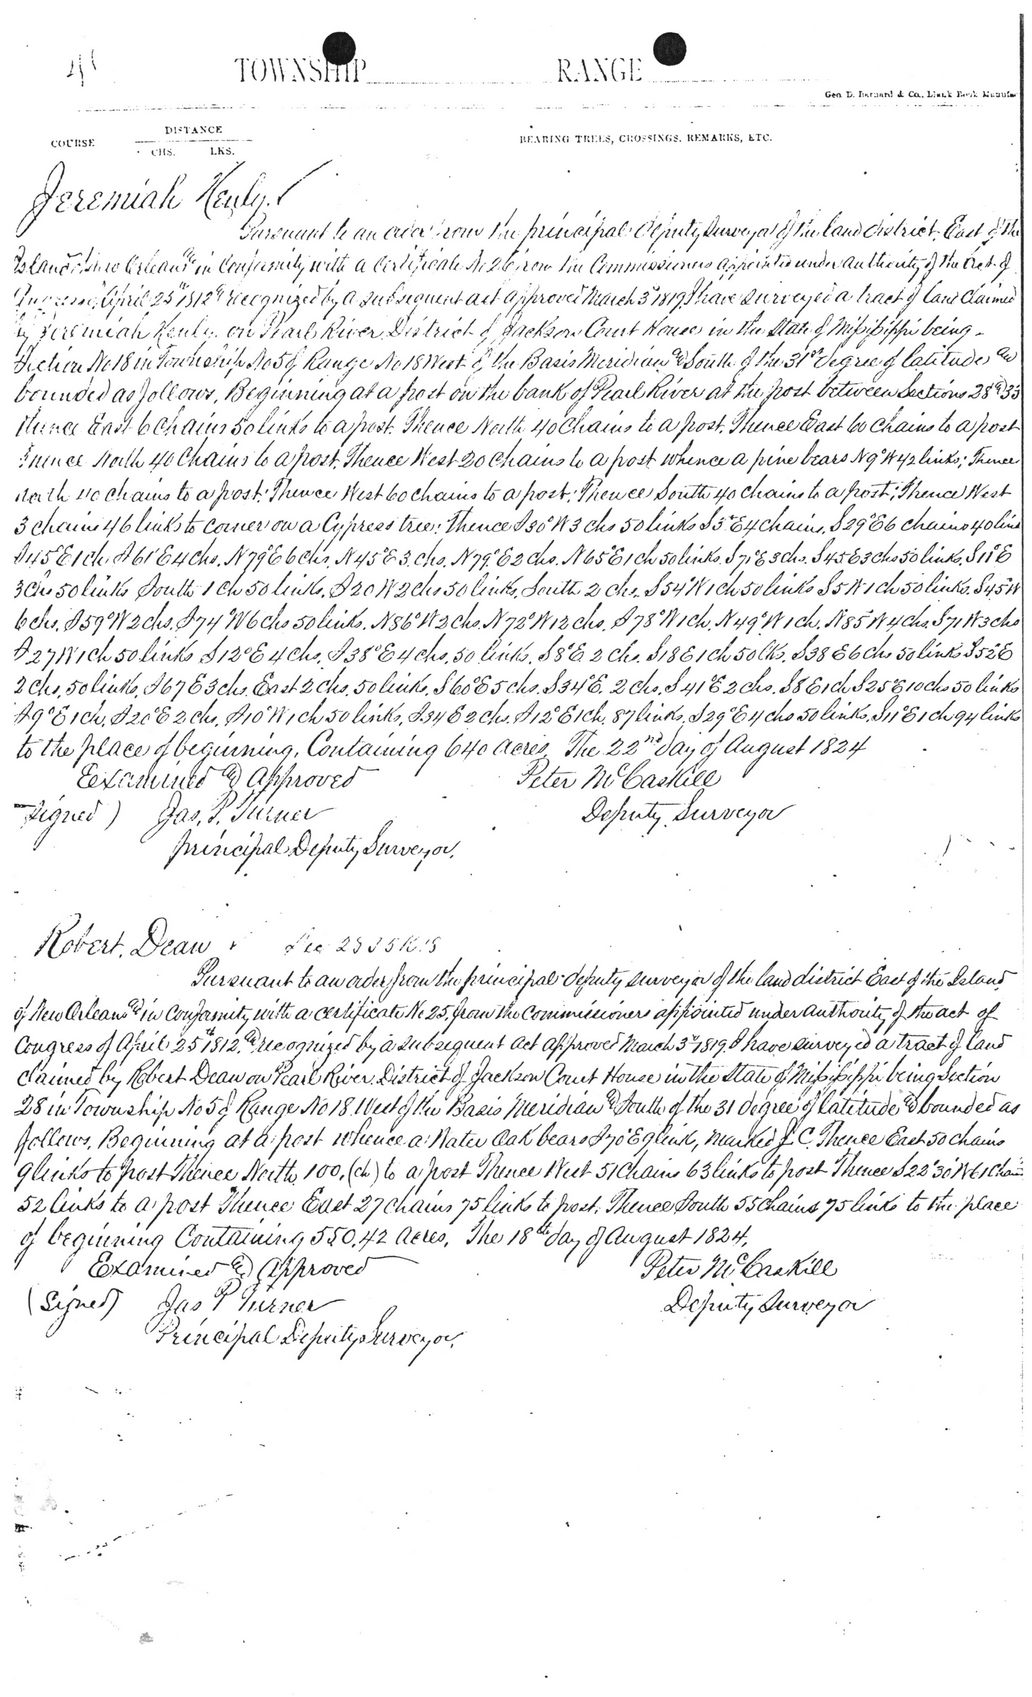 TOWNSHIP RANGE
Geo D. Barnard & Co., Blank Book Manufac
COURSE DISTANCE BEARING TREES, CROSSINGS, REMARKS, ETC.
CHS. LKS.
Jeremiah Henly.
Pursuant to an order from the principal deputy surveyor of the land district, East of the
Island of New Orleans & in conformity with a Certificate No 26 from the Commissioners appointed under authority of the Act of
Congress, April 25th 1812 & recognized by a subsequent act approved March 3d 1819, I have surveyed a tract of land claimed
by Jeremiah Henly on Pearl River District of Jackson Court House in the State of Mississippi being
Section No 18 in Township No 5 of Range No 18 West of the Basis Meridian & South of the 31st degree of latitude &
bounded as follows, Beginning at a post on the bank of Pearl River at the post between Sections 28 & 33
thence East 6 chains 50 links to a post. Thence North 40 Chains to a post, Thence East 60 Chains to a post
Thence North 40 Chains to a post, Thence West 20 Chains to a post whence a pine bears N9°W 42 links; Thence
north 40 chains to a post; Thence West 60 chains to a post; Thence South 40 chains to a post; Thence West
3 chains 46 links to corner on a Cypress tree; Thence S30°W 3 chs 50 links S5°E 4 chains, S29°E 6 chains 40 links
S45°E 1 ch. S61°E 4 chs. N79°E 6 chs. N45°E 3. chs. N79°E 2 chs. N65°E 1 ch 50 links. S71°E 3 chs. S45E 3 chs 50 links, S11°E
3 chs 50 links South 1 ch 50 links, S20W 2 chs 50 links, South 2 chs. S54°W 1 ch 50 links S5W 1 ch 50 links. S45°W
6 chs. S59°W 2 chs. S74°W 6 chs 50 links. N86°W 2 chs. N72°W 12 chs. S78°W 1 ch. N49°W 1 ch. N85°W 4 chs. S71W 3 chs
S27W 1 ch 50 links S12°E 4 chs. S38°E 4 chs. 50 links. S8°E 2 chs. S18E 1 ch 50 lk. S38E 6 chs 50 links S52°E
2 chs, 50 links. S67E 3 chs. East 2 chs. 50 links. S60°E 5 chs. S34°E. 2 chs. S41°E 2 chs. S8E 1 ch S25E 10 chs 50 links
S9°E 1 ch. S20°E 2 chs. S10°W 1 ch 50 links. S34E 2 ch. S12°E 1 ch. 87 links. S29°E 4 chs 50 links. S11°E 1 ch 94 links
to the place of beginning. Containing 640 acres. The 22nd day of August 1824
Examined & Approved Peter McCaskill
Signed) Jas. P. Turner Deputy Surveyor
principal Deputy Surveyor.
Robert. Dean Sec 28 T5 R18
Pursuant to an order from the principal deputy surveyor of the land district East of the Island
of New Orleans & in conformity with a certificate No 25, from the Commissioners appointed under authority of the act of
Congress of April 25th 1812, & recognized by a subsequent act approved March 3d 1819. I have surveyed a tract of land
claimed by Robert Dean on Pearl River District of Jackson Court House in the State of Mississippi being Section
28 in Township No 5 of Range No 18 West of the Basis Meridian & South of the 31 degree of latitude & bounded as
follows, Beginning at a post whence a Water Oak bears S70°E 9 link, marked J. C. Thence East 50 chains
9 links to post Thence North 100, (ch) to a post Thence West 51 Chains 63 links to post Thence S22°30'W 61 Chains
52 links to a post Thence East 27 chains 75 links to post, Thence South 55 Chains 75 links to the place
of beginning Containing 550,42 acres. The 18th day of August 1824.
Examined & Approved Peter McCaskill
(Signed) Jas P Turner Deputy Surveyor
Principal Deputy Surveyor.